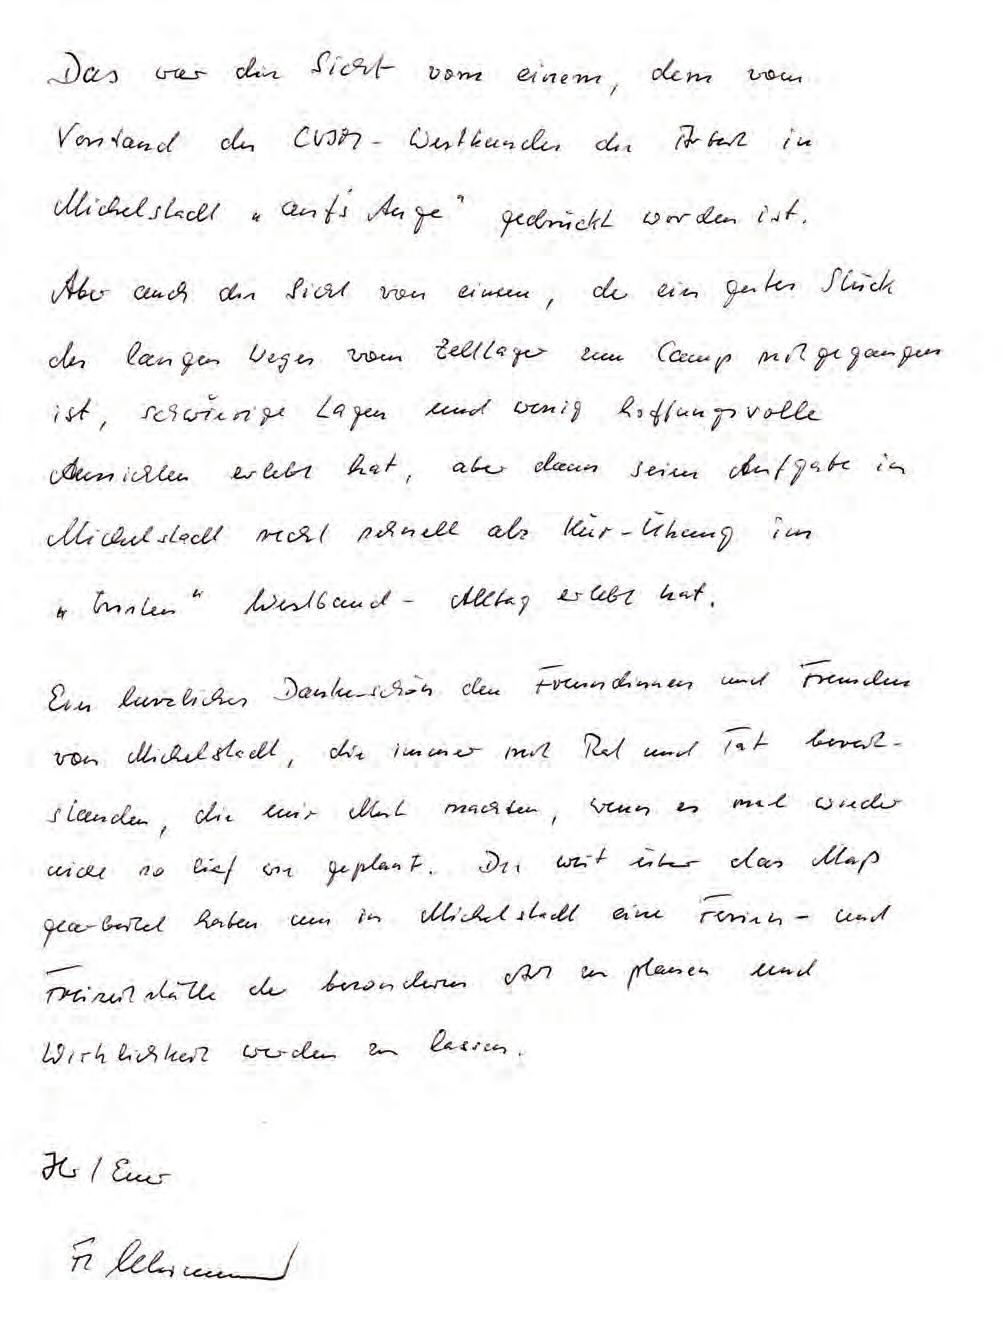 Das war die Sicht von einem, dem vom
Vorstand des CVJM-Westbundes die Arbeit in
Michelstadt „aufs Auge" gedrückt worden ist.
Aber auch die Sicht von einem, der ein gutes Stück
des langen Weges vom Zeltlager zum Camp mitgegangen
ist, schwierige Lagen und wenig hoffnungsvolle
Aussichten erlebt hat, aber dann seine Aufgabe in
Michelstadt recht schnell als Kür-Übung im
„ " Westbund-Alltag erlebt hat.
Ein herzliches Danke-schön den Freundinnen und Freunden
von Michelstadt, die immer mit Rat und Tat bereit-
standen, die mir Mut machten, wenn es mal wieder
nicht so lief wie geplant. Die weit über das Maß
gearbeitet haben um in Michelstadt eine Ferien- und
Freizeitstätte der besonderen Art zu planen und
Wirklichkeit werden zu lassen.
Ihr / Euer